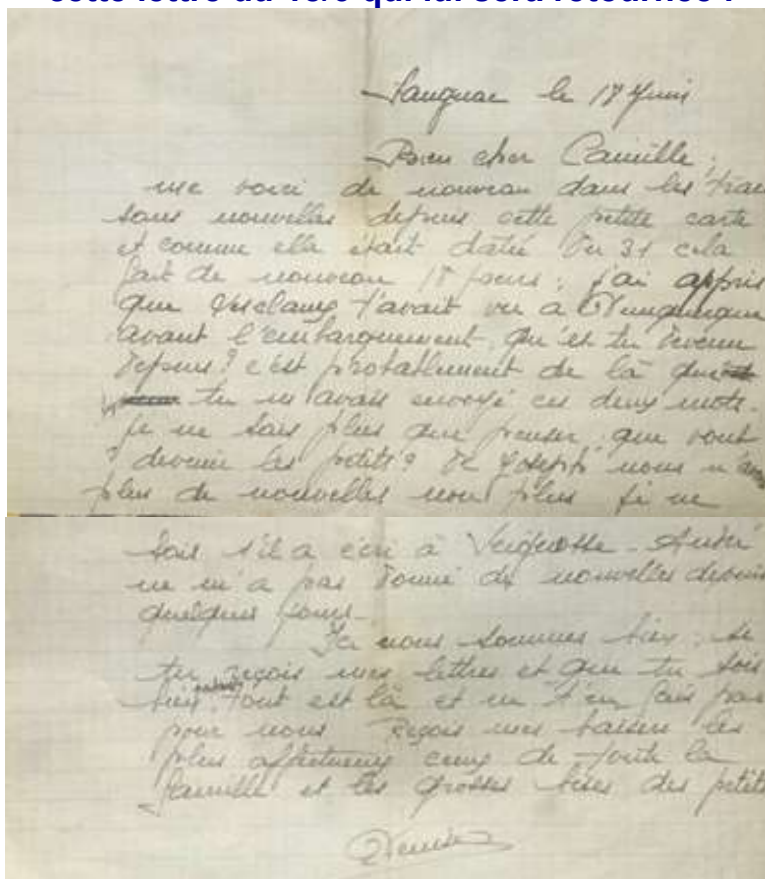 cette lettre du 18/6 qui lui sera retournée :
le 18 Juin
Bien cher Camille,
me voici de nouveau dans les
sans nouvelles depuis cette petite carte
et comme elle était daté du 31 cela
fait de nouveau 18 jours ; j'ai appris
que t'avait vu a
avant l'embarquement, qu'es tu devenu
depuis ? c'est probablement de là que
tu m'avais envoyé ces deux mots.
je ne sais plus que penser, que vont
devenir les petits ? De Joseph nous n'avons
plus de nouvelles non plus je ne
sais s'il a écri à
ne m'a pas donné de nouvelles depuis
quelques jours.
Ici nous sommes bien, si
tu reçois mes lettres et que tu sois
bien tout est là et ne t'en fais pas
pour nous Reçois mes baisers les
plus affectueux ceux de toute la
famille et les grosses bises des petits
Denise